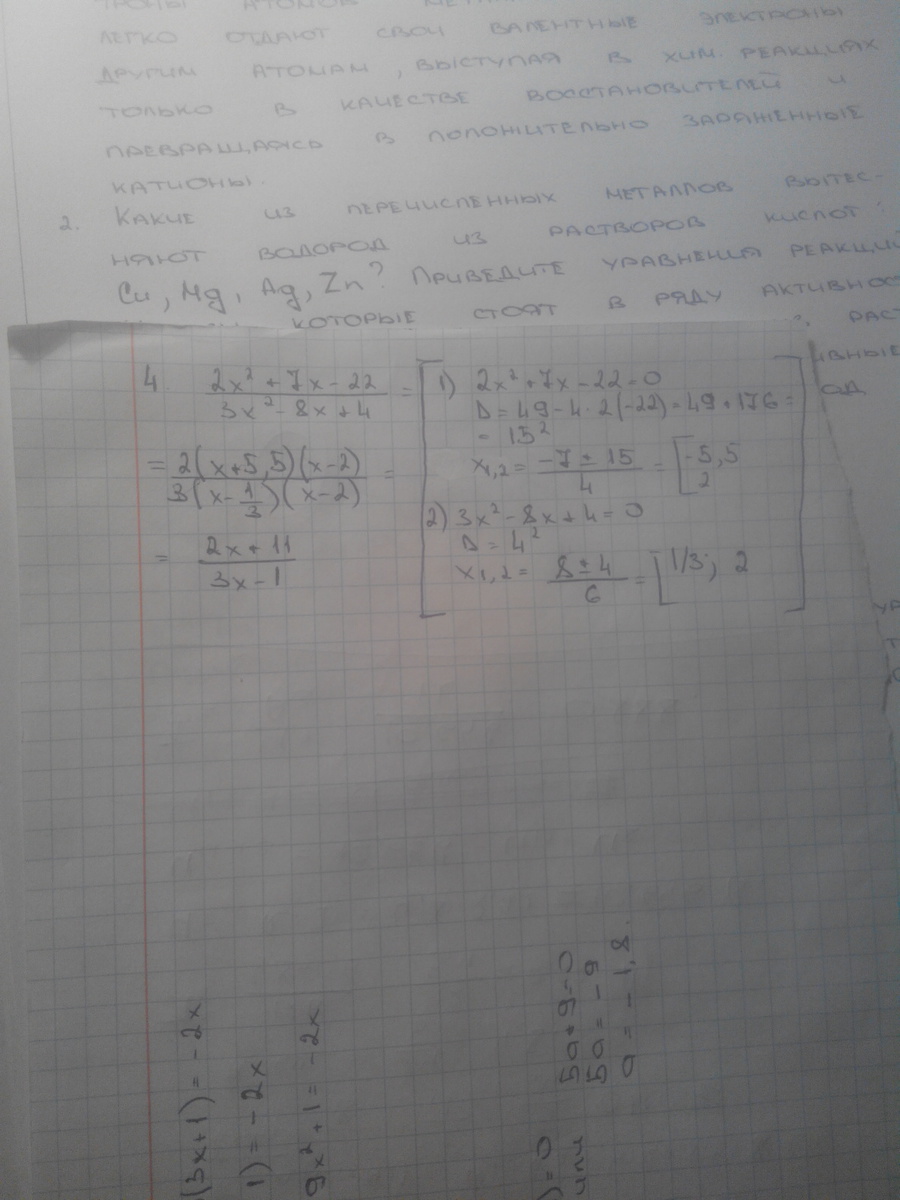 ТРОНЫ АТОМОВ
ЛЕГКО ОТДАЮТ СВОИ ВАЛЕНТНЫЕ ЭЛЕКТРОНЫ
ДРУГИМ АТОМАМ, ВЫСТУПАЯ В ХИМ. РЕАКЦИЯХ
ТОЛЬКО В КАЧЕСТВЕ ВОССТАНОВИТЕЛЕЙ И
ПРЕВРАЩАЯСЬ В ПОЛОЖИТЕЛЬНО ЗАРЯЖЕННЫЕ
КАТИОНЫ.
2. КАКИЕ ИЗ ПЕРЕЧИСЛЕННЫХ МЕТАЛЛОВ ВЫТЕС-
НЯЮТ ВОДОРОД ИЗ РАСТВОРОВ КИСЛОТ:
Cu, Mg, Ag, Zn? ПРИВЕДИТЕ УРАВНЕНИЯ РЕАКЦИЙ
КОТОРЫЕ СТОЯТ В РЯДУ АКТИВНОС
РАСТ
ИВНЫЕ
ОД
4. (2x² + 7x - 22)/(3x² - 8x + 4) =
= 2(x+5,5)(x-2)/3(x-1/3)(x-2) =
= (2x+11)/(3x-1)
1) 2x² + 7x - 22 = 0
D = 49 - 4·2(-22) = 49 + 176 =
= 15²
x₁,₂ = (-7 ± 15)/4 = [-5,5
2
2) 3x² - 8x + 4 = 0
D = 4²
x₁,₂ = (8 ± 4)/6 = [1/3; 2
(3x+1) = -2x
1) = -2x
9x² + 1 = -2x
) = 0
или
5a + 9 = 0
5a = -9
a = -1,8.